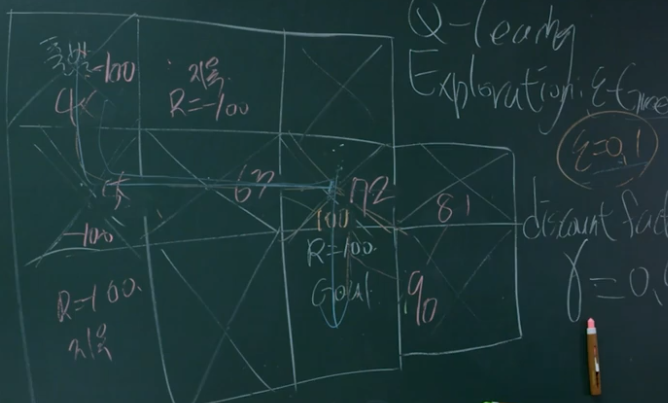 Q-learning
Exploration: ε-Gree
ε=0.1
discount fac
γ=0.9
출발
-100
지옥
R=-100
63
72
81
-100
100
R=100
Goal
90
R=-100
지옥